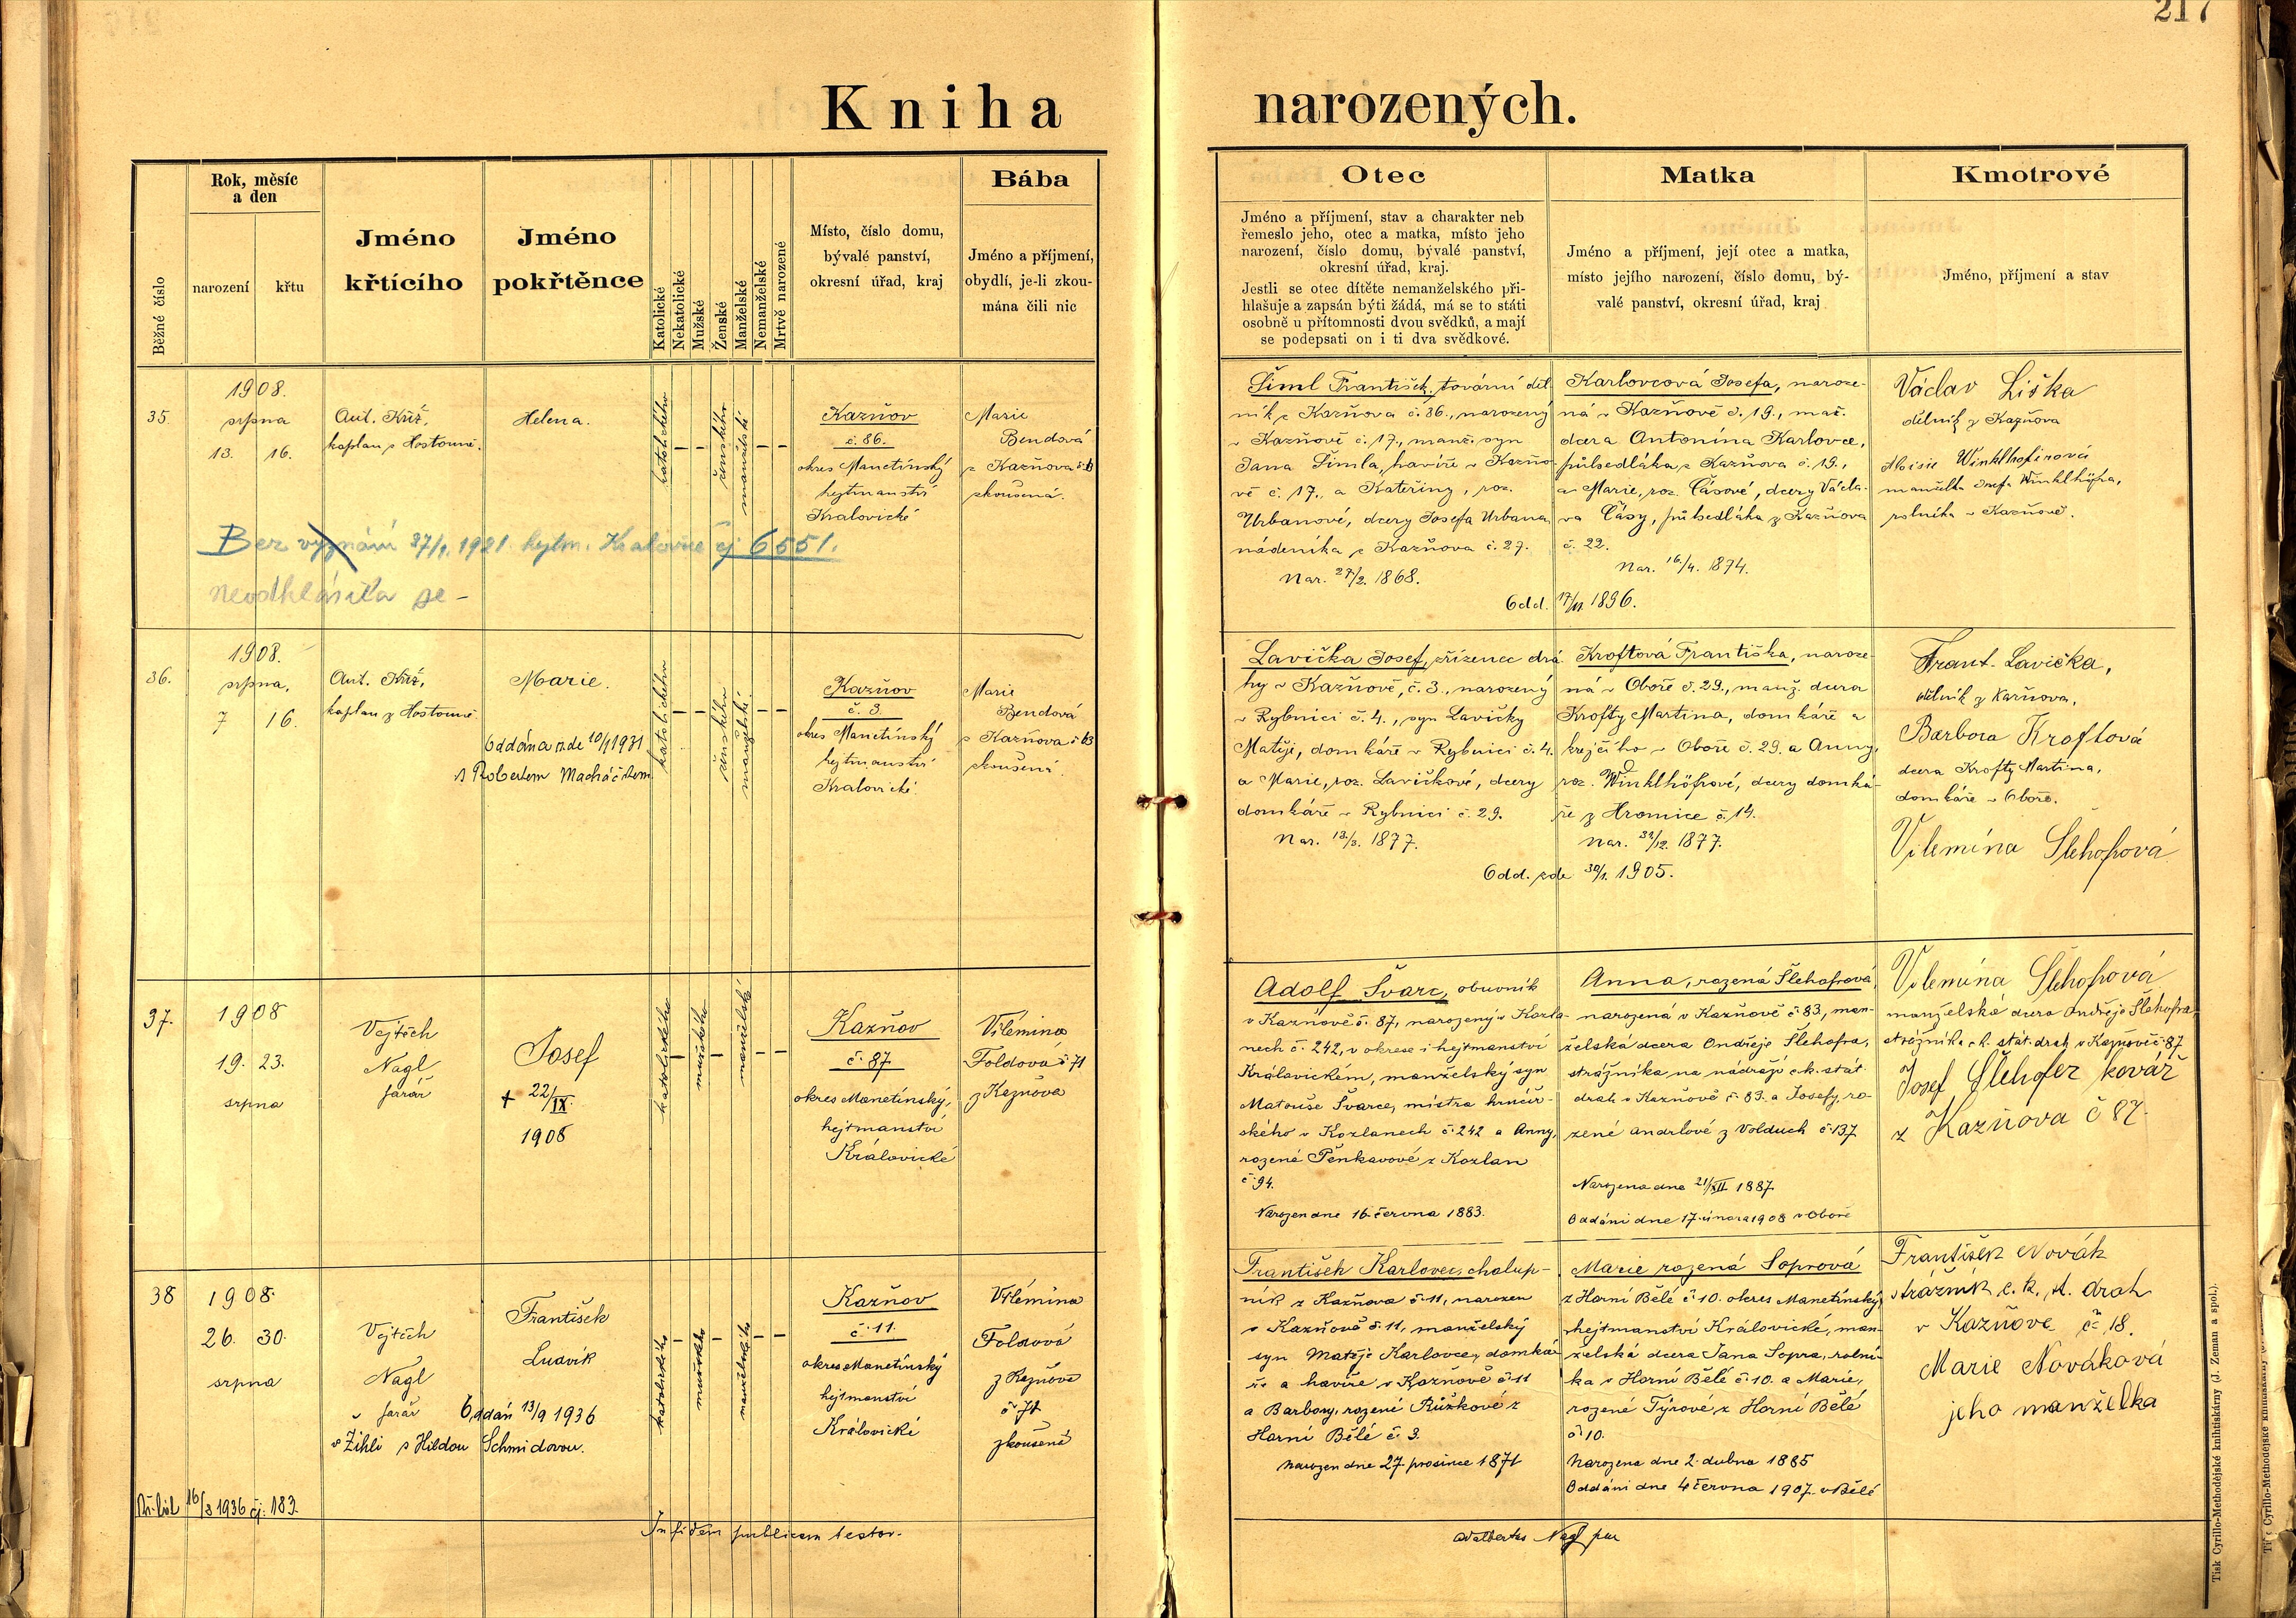 217
Kniha narozených.
Běžné číslo
Rok, měsíc
a den
narození
křtu
Jméno
křtícího
Jméno
pokřtěnce
Katolické
Nekatolické
Mužské
Ženské
Manželské
Nemanželské
Mrtvě narozené
Místo, číslo domu,
bývalé panství,
okresní úřad, kraj
Bába
Jméno a příjmení,
obydlí, je-li zkou-
mána čili nic
Otec
Jméno a příjmení, stav a charakter neb
řemeslo jeho, otec a matka, místo jeho
narození, číslo domu, bývalé panství,
okresní úřad, kraj.
Jestli se otec dítěte nemanželského při-
hlašuje a zapsán býti žádá, má se to státi
osobně u přítomnosti dvou svědků, a mají
se podepsati on i ti dva svědkové.
Matka
Jméno a příjmení, její otec a matka,
místo jejího narození, číslo domu, bý-
valé panství, okresní úřad, kraj
Kmotrové
Jméno, příjmení a stav
35.
1908.
srpna
13. 16.
Ant. Kříž,
kaplan z Hostouně.
Helena.
katolického
ženského
manželské
Kazňov
č. 86.
okres Manetínský
hejtmanství
Kralovické
Marie
Bendová
z Kazňova
zkoušená.
Bez vyznání 1921. hejtm. Kralovice čj 6551.
neodhlásila se -
Šiml František, tovární děl-
ník z Kazňova č. 86., narozený
v Kazňově č. 17., manž. syn
Jana Šimla, havíře v Kazňo-
vě č. 17., a Kateřiny, roz.
Urbanové, dcery Josefa Urbana,
nádeníka z Kazňova č. 27.
Nar. 27/2. 1868.
Karlovcová Josefa, naroze-
ná v Kazňově č. 19., man.
dcera Antonína Karlovce,
půlsedláka z Kazňova č. 19.,
a Marie, roz. Čásové, dcery Václa-
va Čásy, půlsedláka z Kazňova
č. 22.
Nar. 16/4. 1874.
Odd. 1896.
Václav Liška
dělník z Kazňova
Aloisie Winklhofrová
manželka Josefa Winklhöfra,
rolníka v Kazňově.
36.
1908.
srpna,
7 16.
Ant. Kříž,
kaplan z Hostouně.
Marie.
Oddána zde 10/1 1931
s Robertem Macháčkem
katolického
ženského
manželské.
Kazňov
č. 3.
okres Manetínský
hejtmanství
Kralovické.
Marie
Bendová
z Kazňova č. 63
zkoušená.
Lavička Josef, zřízenec drá-
hy v Kazňově, č. 3., narozený
v Rybnici č. 4., syn Lavičky
Matěje, domkáře v Rybnici č. 4.
a Marie, roz. Lavičkové, dcery
domkáře v Rybnici č. 29.
Nar. 13./3. 1877.
Kroftová Františka, naroze-
ná v Oboře č. 29., manž. dcera
Krofty Martina, domkáře a
krejčího v Oboře č. 29. a Anny,
roz. Winklhöfrové, dcery domká-
ře z Hromice č. 14.
Nar. 1877.
Odd. zde 30/1. 1905.
Frant. Lavička,
dělník z Kazňova,
Barbora Kroftová
dcera Krofty Martina,
domkáře v Oboře.
Vilemína Šlehofrová
37.
1908
19. 23.
srpna
Vojtěch
Nagl
farář
Josef
+ 22/IX
1908
katolického
mužského
manželské
Kazňov
č. 87
okres Manetínský,
hejtmanství
Královické
Vilémina
Foldová č. 71
z Kazňova
Adolf Švarc, obuvník
v Kazňově č. 87, narozený v Kozla-
nech č. 242, v okrese i hejtmanství
Královickém, manželský syn
Matouše Švarce, mistra hrnčíř-
ského v Kozlanech č. 242 a Anny,
rozené Pěnkavové z Kozlan
č. 94.
Narozen dne 16. června 1883.
Anna, rozená Šlehofrová,
narozená v Kazňově č. 83, man-
želská dcera Ondřeje Šlehofra,
strážníka na nádraží c.k. stát.
drah v Kazňově č. 83. a Josefy, ro-
zené Andrlové z Volduch č. 137
Narozena dne 21/XII 1887
Oddáni dne 17. února 1908 v Oboře
Vilemína Šlehofrová
manželská dcera Ondřeje Šlehofra,
strážníka c.k. stát. drah v Kazňově č. 87
Josef Šlehofer kovář
z Kazňova č 87.
38
1908.
26. 30.
srpna
Vojtěch
Nagl
farář
František
Ludvík
Oddán 13/9 1936
v Žihli s Hildou Schmidovou.
16/3 1936 čj. 183.
katolického
mužského
manželského
Kazňov
č. 11.
okres Manetínský
hejtmanství
Královické
Vilémina
Foldová
z Kazňova
č. 71
zkoušená
František Karlovec, chalup-
ník z Kazňova č. 11, narozen
v Kazňově č. 11, manželský
syn Matěje Karlovce, domká-
ře a havíře v Kazňově č. 11
a Barbory, rozené Růžkové z
Horní Bělé č. 3.
Narozen dne 27. prosince 1871
Marie rozená Soprová
z Horní Bělé č. 10. okres Manetínský,
hejtmanství Královické, man-
želská dcera Jana Sopra, rolní-
ka v Horní Bělé č. 10. a Marie,
rozené Týrové z Horní Bělé
č. 10.
Narozena dne 2. dubna 1885
Oddáni dne 4 června 1907. v Bělé
František Novák
strážník c. k. st. drah
v Kazňove č 18.
Marie Nováková
jeho manželka
In fidem publicam testor.
Adalbertus Nagl
Tisk Cyrillo-Methodějské knihtiskárny (J. Zeman a spol.).